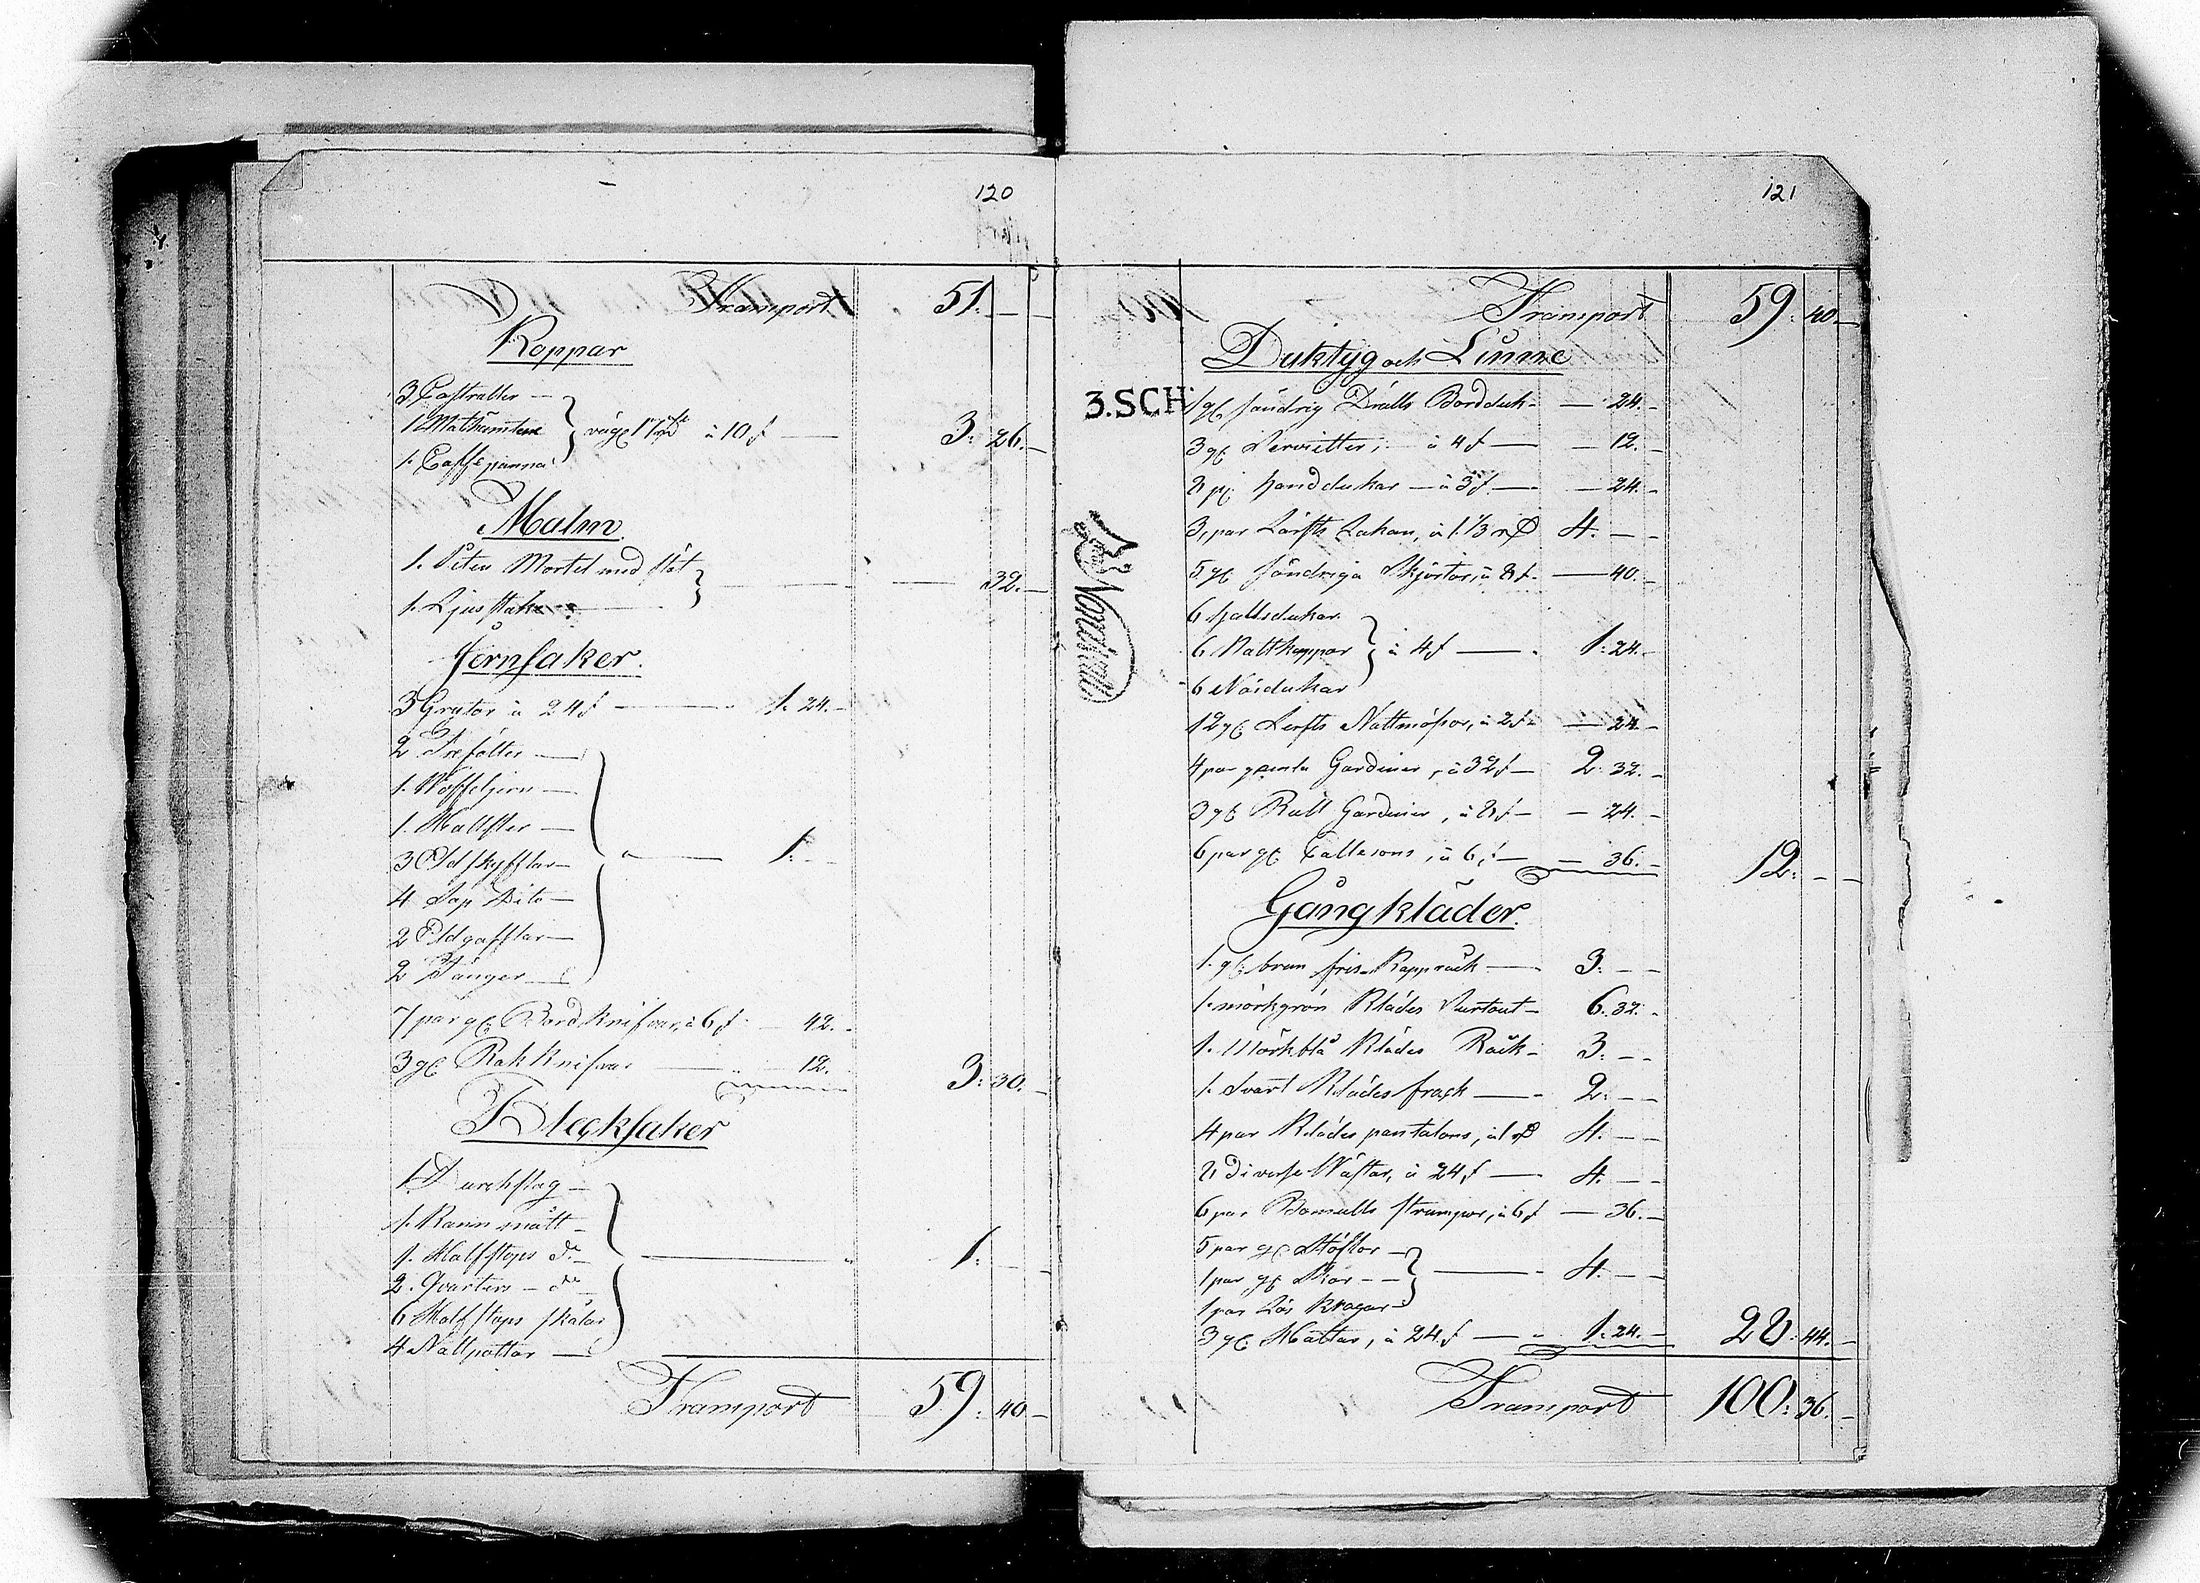 120
Transport 51. — —
Koppar
3 Castruller —
1. Mathämtare } väga 17 ½ ℔ à 10 f — 3: 26. —
1. Caffépanna
Malm
1. Liten Mortel med stöt
1. Ljusstake } — 32. —
Jernsaker.
3 Grytor à 24 f — 1. 24. —
2 Trefötter —
1. Woffeljern —
1. Halster —
3 Eldskyfflar — 1. —
4 Sop Dito —
2 Eldgafflar —
2 Tänger —
7 par gl. Bord Knifvar, à 6 f — 42. —
3 gl. Rak Knifvar — 12. — 3: 30. —
Blecksaker
1. Durchslag —
1. Kann mått —
1. Halfstops do — 1. — —
2. Qvarters — do
6 Halfstops skålar
4 Nattpottor —
Transport 59. 40 —
121
Transport 59. 40. —
Duktyg och Linne
3.SCH
1 gl. söndrig Drälls Bordduk — 24. —
3 gl. Servietter, à 4 f — 12. —
8 gl. handdukar — à 3 f — 24. —
3, par Lärfts Lakan, à 1. 1/3 rd 4. — —
5 gl. söndriga Skjortor, à 8 f — 40. —
6 halsdukar
6 Nattkappor } à 4 f — 1. 24. —
6 Näsdukar
12 gl. Lerfts Nattmössor, à 2 f — 24. —
4 par gamla Gardiner, à 32 f — 2. 32. —
3 gl. Rull Gardiner, à 8 f — 24. —
6 par gl. Callesons, à 6 f — 36. — 12. — —
Gångkläder.
1. gl. brun fris Kapprock — 3. — —
1. mörkgrön Klädes Surtout — 6. 32. —
1. Mörkblå Klädes Rock — 3. — —
1. Svart Klädes frack — 2. — —
4 par Klädes pantalons, à 1 rd 4. — —
8 diverse Wästar, à 24 f — 4. — —
6 par Bomulls strumpor, à 6 f — 36. —
5 par gl. Stöflor —
1 par gl. Skor — — } — 4. — —
1 par Lös Kragar
3 gl. Hattar, à 24 f — 1. 24. — 28. 44. —
Transport 100. 36. —